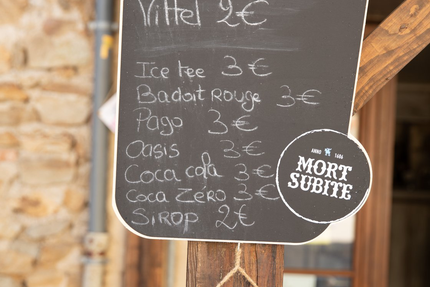 Vittel 2€
Ice tee 3€
Badoit Rouge 3€
Pago 3€
Oasis 3€
Coca cola 3€
Coca Zéro 3€
Sirop 2€
ANNO 1686
MORT
SUBITE